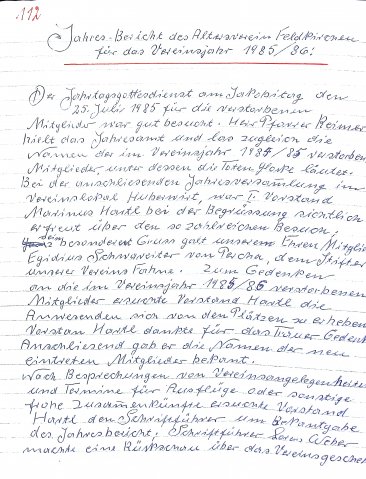 112
Jahres-Bericht des Altersverein Feldkirchen
für das Vereinsjahr 1985/86:
Der Jahrtagsgottesdienst am Jakobitag den
25. Juli 1985 für die verstorbenen
Mitglieder war gut besucht. Herr Pfarrer
hielt das Jahresamt und las zugleich die
Namen der im Vereinsjahr 1984/85 verstorben
Mitglieder unter dessen die Toten Glocke läutet.
Bei der anschliesenden Jahresversamlung im
Vereinslokal Huberwirt, war I. Vorstand
Marinus Hartl bei der Begrüssung sichtlich
erfreut über den so zahlreichen Besuch,
besonderer Gruss galt unserem Ehren Mitglied
Egidius Schwaweiter von Percha, dem Stifter
unserer Vereins Fahne. Zum Gedenken
an die im Vereinsjahr 1985/86 verstorbenen
Mitglieder ersuchte Vorstand Hartl die
Anwesenden sich von den Plätzen zu erheben
Vorstan Hartl dankte für das Trauer Gedenk
Anschliesend gab er die Namen der neu
eintreten Mitglieder bekant.
Nach Besprechungen von Vereinsangelegenheiten
und Termine für Ausflüge oder sonstige
frohe Zusamenkünfte ersuchte Vorstand
Hartl den Schriftführer um Bekantgabe
des Jahresbericht. Schriftführer Weber
machte eine Rückschau über das Vereinsgescheh